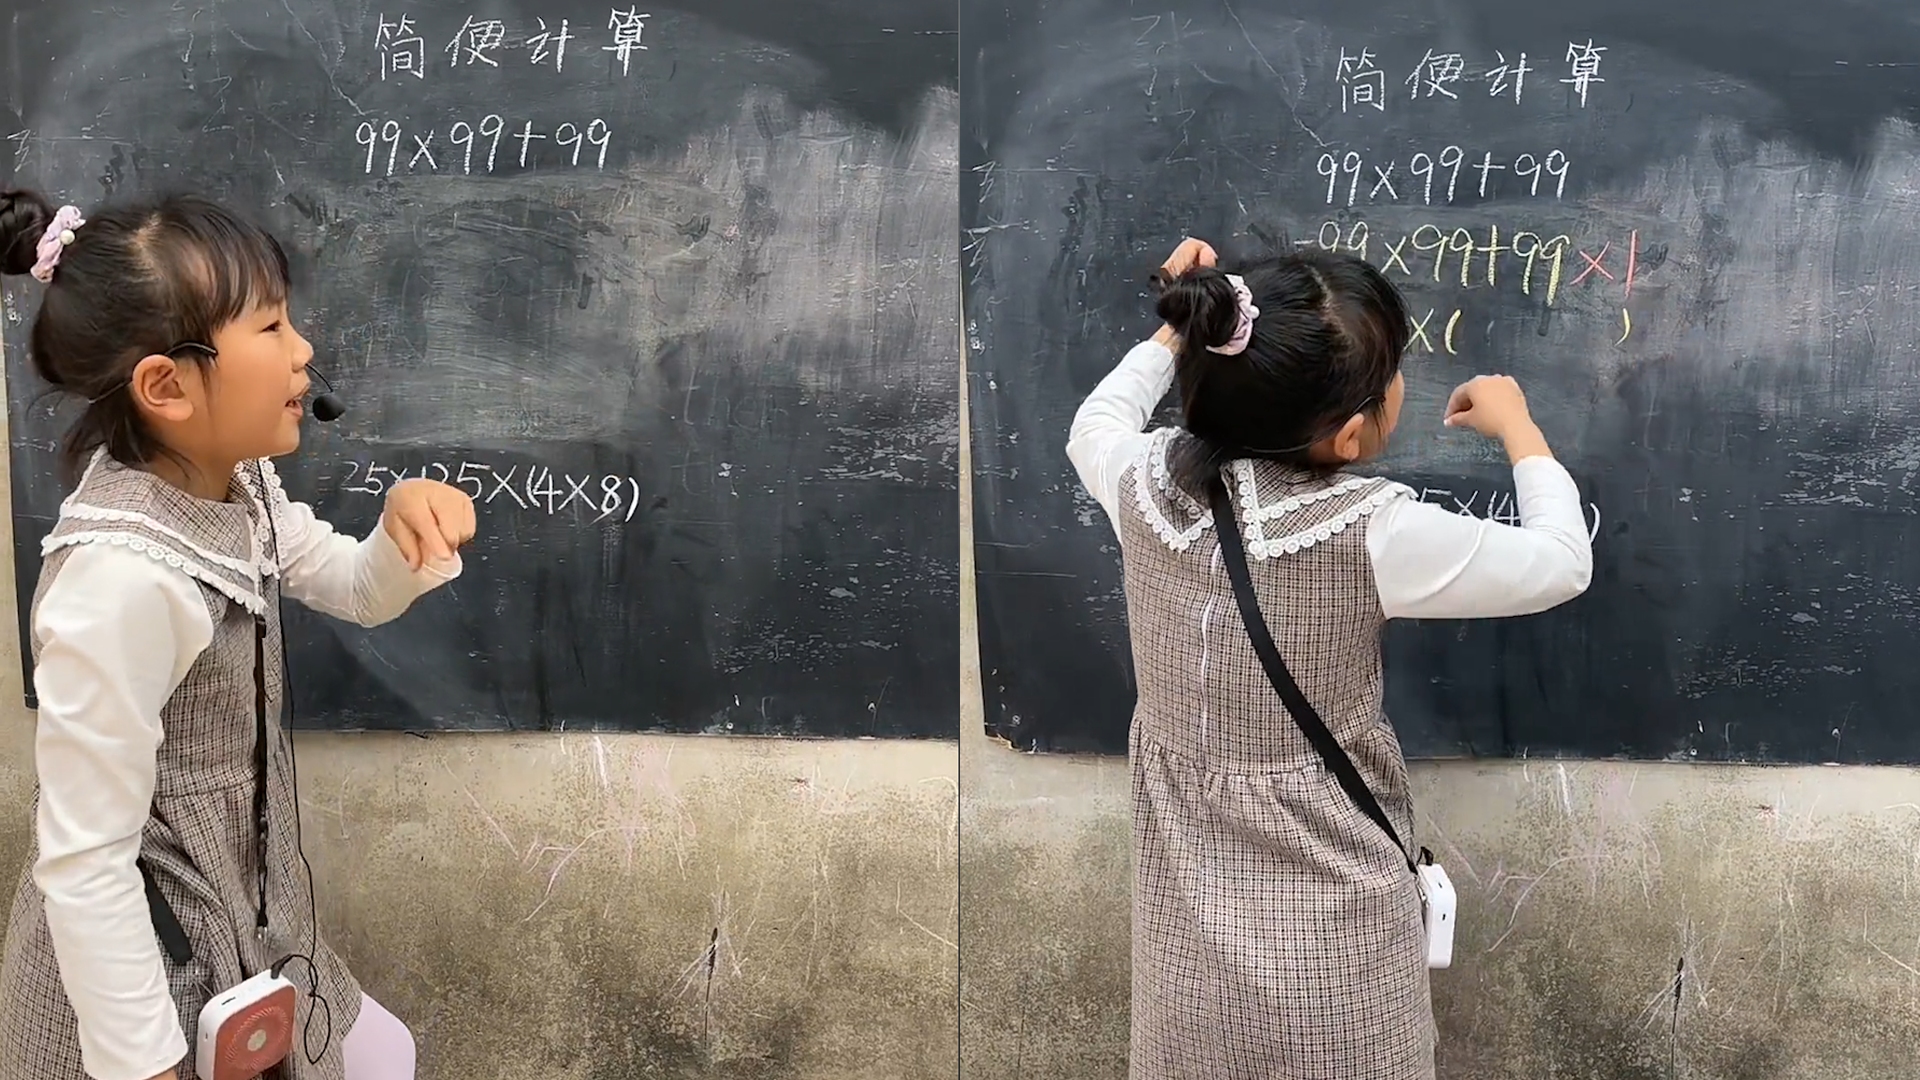 简便计算
99×99+99
25×125×(4×8)
简便计算
99×99+99
99×99+99×1
×( )
5×(4